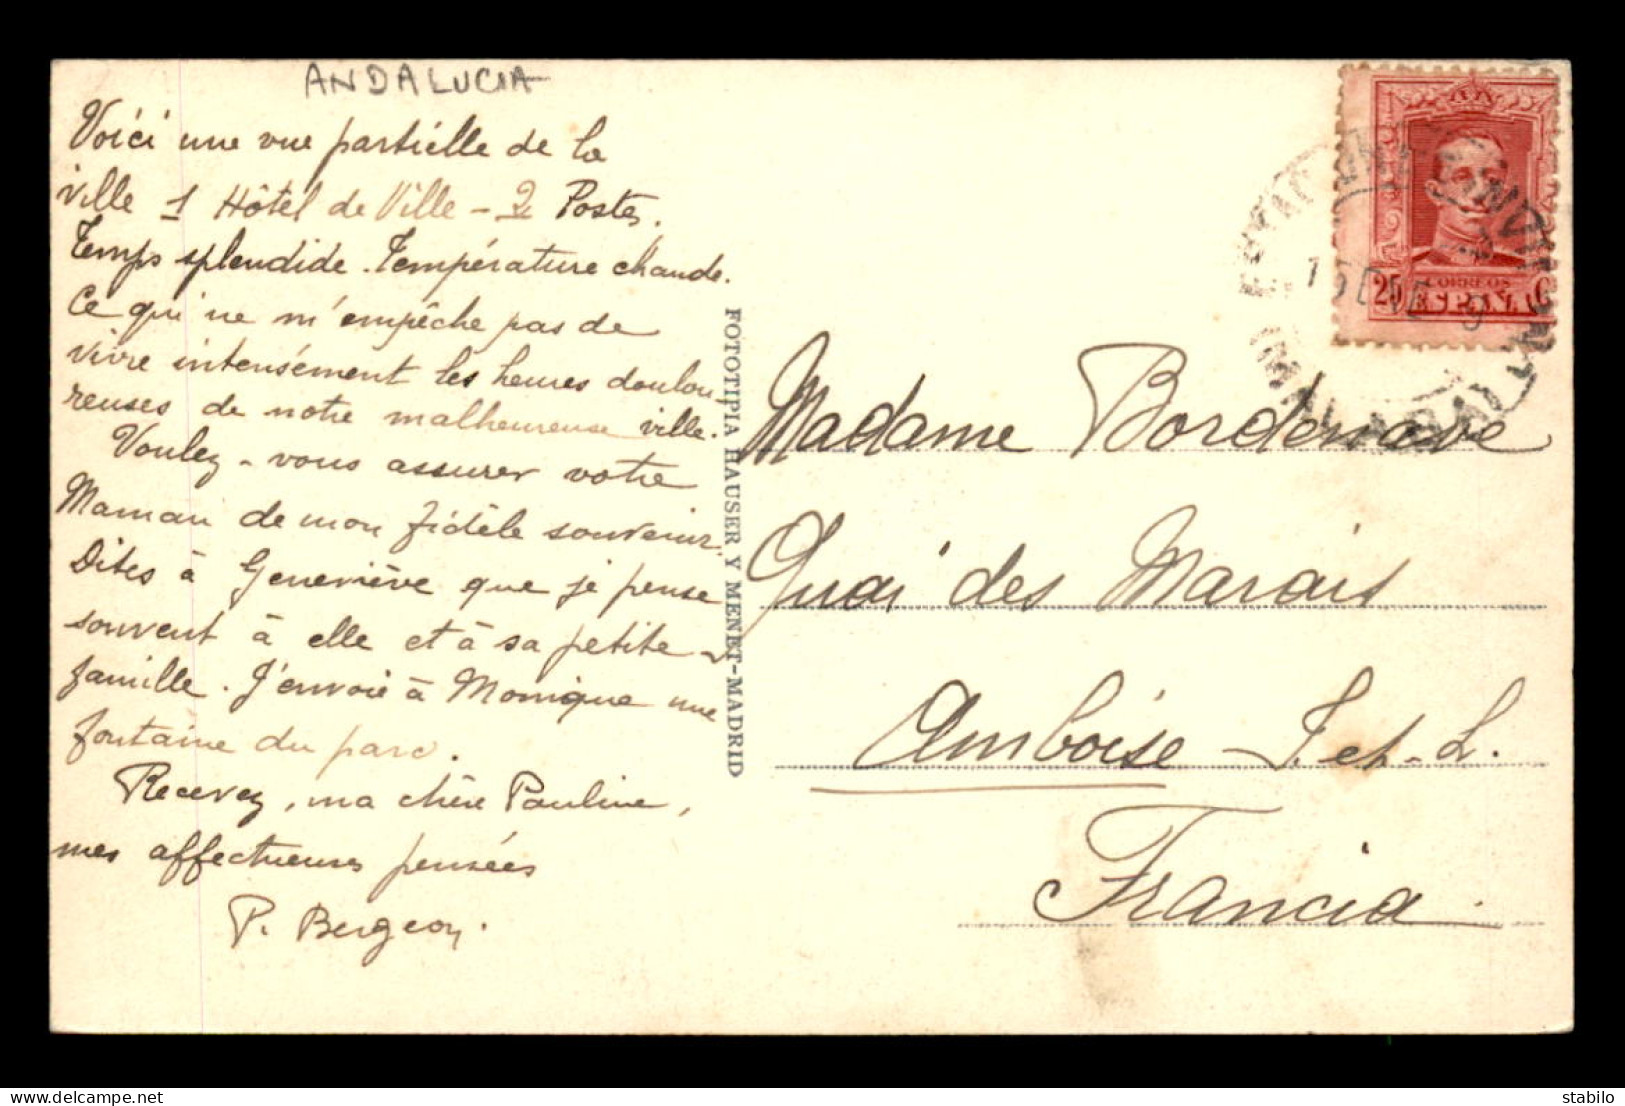 ANDALUCIA
Voici une vue partielle de la
ville 1 Hôtel de Ville - 2 Postes.
Temps splendide. Température chaude.
Ce qui ne m'empêche pas de
vivre intensément les heures doulou
reuses de notre malheureuse ville.
Voulez-vous assurer votre
Maman de mon fidèle souvenir.
Dites à Geneviève que je pense
souvent à elle et à sa petite
famille. J'envoie à Monique une
fontaine du parc.
Recevez, ma chère Pauline,
mes affectueuses pensées
P. Bergeon.
FOTOTIPIA HAUSER Y MENET-MADRID
CORREOS
25 ESPAÑA C
Madame Bordenave
Quai des Marais
Amboise - I. et-L.
Francia.
delcampe.net
stabilo